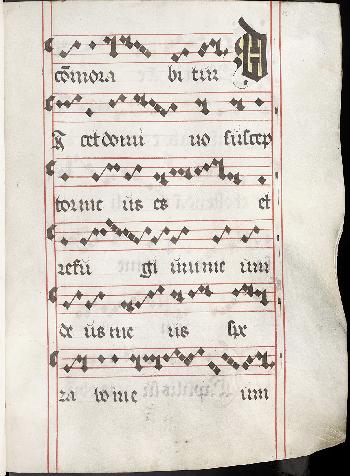 cōmora bi tur D
I cet domi no suscep
tor me us es et
refu gi um me um
de us me us spe
ra bo in e um